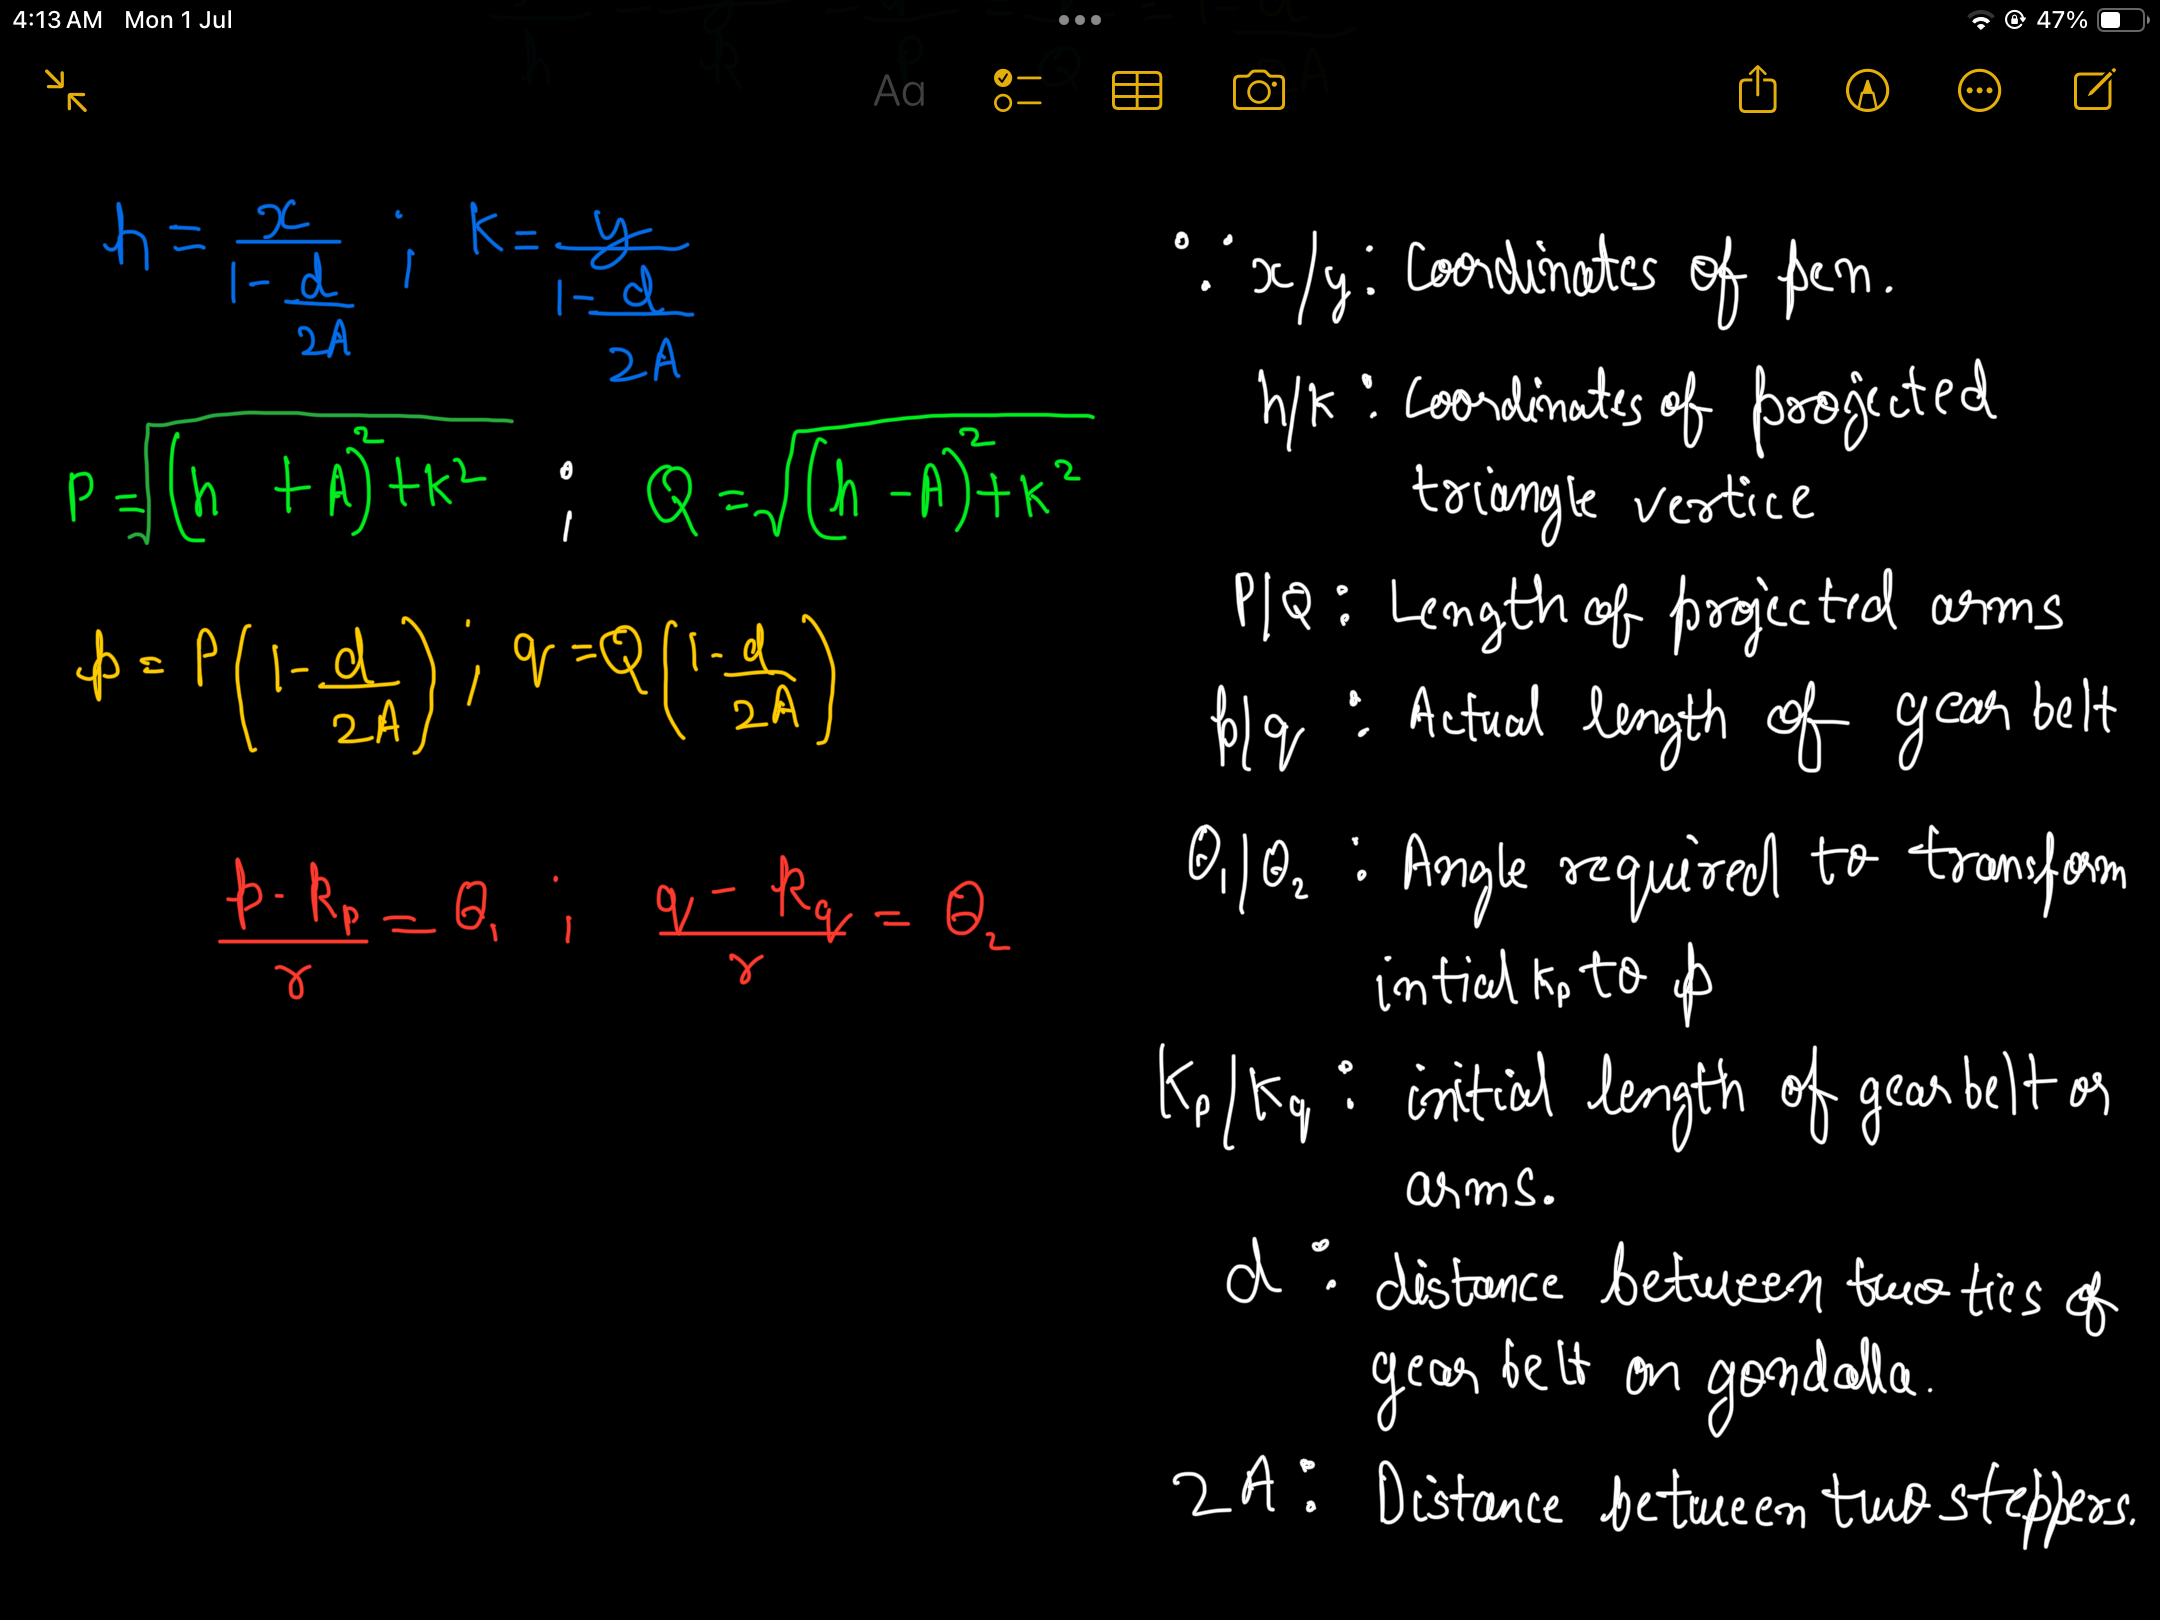 4:13 AM Mon 1 Jul
47%
Aa
h = x / (1 - d/2A) ; K = y / (1 - d/2A)
P = √((h + A)² + K²) ; Q = √((h - A)² + K²)
p = P(1 - d/2A) ; q = Q(1 - d/2A)
(p - kp) / r = θ₁ ; (q - kq) / r = θ₂
∵ x/y : Coordinates of pen.
h/K : Coordinates of projected
triangle vertice
P/Q : Length of projected arms
p/q : Actual length of gear belt
θ₁/θ₂ : Angle required to transform
intial Kp to p
Kp/Kq : initial length of gear belt or
arms.
d : distance between two ties of
gear belt on gondalla.
2A : Distance between two steppers.